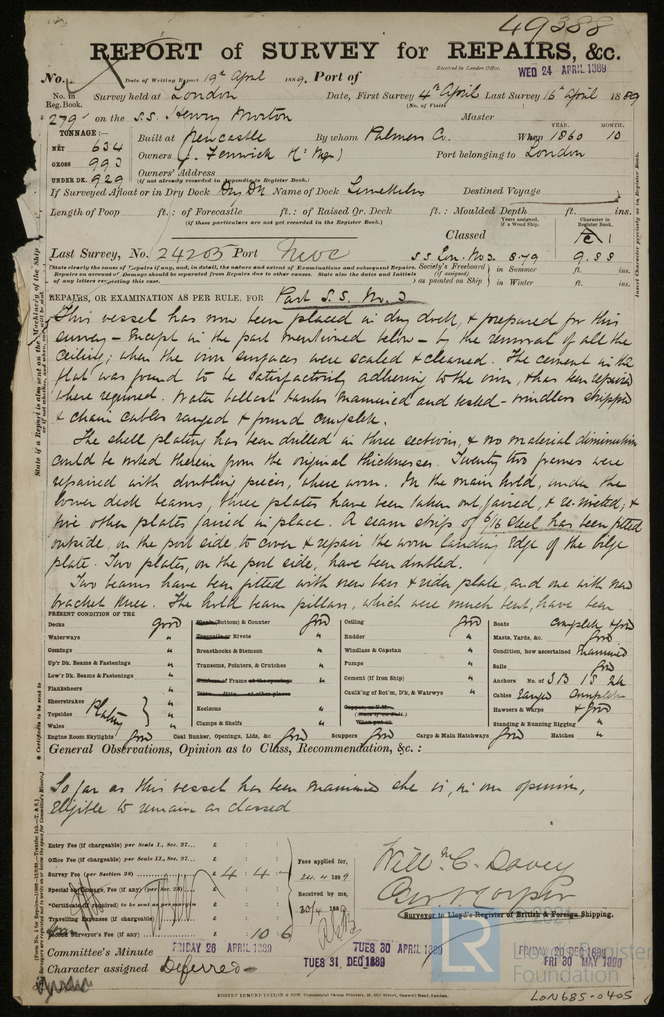 49388
REPORT of SURVEY for REPAIRS, &c.
Received in London Office. WED 24 APRIL 1889
No. Date of Writing Report 19th April 1889. Port of
No. in Reg. Book. Survey held at London Date, First Survey 4th April Last Survey 16th April 1889
(No. of Visits)
279 on the S.S. Henry Morton Master
TONNAGE:— YEAR. MONTH.
NET 634 Built at Newcastle By whom Palmers Co. When 1860 10
GROSS 993 Owners J. Fenwick Port belonging to London
UNDER DK. 929 Owners' Address
(if not already recorded in Appendix to Register Book.)
If Surveyed Afloat or in Dry Dock Dry Dk Name of Dock Limekiln Destined Voyage
Length of Poop ft.: of Forecastle ft.: of Raised Qr. Deck ft.: Moulded Depth ft. ins.
(if these particulars are not yet recorded in the Register Book.)
Years assigned, if a Wood Ship. Character in Register Book.
Classed
Last Survey, No. 24205 Port Nwc S.S. Lon. No 3. 8-79 9.88
(State clearly the cause of Repairs if any, and, in detail, the nature and extent of Examinations and subsequent Repairs. Society's Freeboard in Summer ft. ins.
Repairs on account of Damage should be separated from Repairs due to other causes. State also the dates and Initials (if assigned)
of any letters respecting this case. as painted on Ship in Winter ft. ins.
REPAIRS, OR EXAMINATION AS PER RULE, FOR Part S.S. No. 3
This vessel has now been placed in dry dock, & prepared for this
survey – except in the part mentioned below – by the removal of all the
ceiling; when the iron surfaces were scaled & cleaned. The cement in the
flat was found to be satisfactorily adhering to the iron, & has been repaired
where required. Water ballast tanks examined and tested – windlass shipped
& chain cables ranged & found complete.
The shell plating has been drilled in three sections, & no material diminution
could be noted therein from the original thicknesses. Twenty two frames were
repaired with doubling pieces, where worn. In the main hold, under the
lower deck beams, three plates have been taken out, faired, & re-riveted; &
five other plates faired in place. A seam strip of 6/16 steel has been fitted
outside, on the port side, to cover & repair the worn landing edge of the bilge
plate. Two plates, on the port side, have been doubled.
Two beams have been fitted with new bars & rider plate, and one with new
bracket knee. The hold beam pillars, which were much bent, have been
PRESENT CONDITION OF THE
Decks good
Waterways "
Comings "
Up'r Dk. Beams & Fastenings "
Low'r Dk. Beams & Fastenings "
Planksheers
Sheerstrakes
Topsides Plating "
Wales
Plank (Bottom) & Counter good
Treenails or Rivets "
Breasthooks & Stemson "
Transoms, Pointers, & Crutches "
Timbers of Frame at the openings "
Ditto Ditto at other places
Keelsons "
Clamps & Shelfs "
Ceiling good
Rudder "
Windlass & Capstan "
Pumps "
Cement (if Iron Ship) "
Caulk'ng of Bot'm, D'k, & Watrwys "
Boats complete & good
Masts, Yards, &c. good
Condition, how ascertained Examined
Sails good
Anchors No. of 3 B 1 S 2 K
Cables ranged complete
Hawsers & Warps & good
Standing & Running Rigging "
Engine Room Skylights good Coal Bunker, Openings, Lids, &c. good Scuppers good Cargo & Main Hatchways good Hatches "
General Observations, Opinion as to Class, Recommendation, &c.:
So far as this vessel has been examined she is, in our opinion,
eligible to remain as classed
Entry Fee (if chargeable) per Scale I., Sec. 27... £ : :
Office Fee (if chargeable) per Scale II., Sec. 27... £ : :
Survey Fee (per Section 28) £ 4 : 4 :
Special Damage Fee (if any) (per Sec. 28) £ : :
Certificate (if required) to be sent as per margin
Travelling Expenses (if chargeable) £ : :
Surveyor's Fee (if any) 10 6
Fees applied for, 24.4 1889
Received by me, 30/4 1889
Will McC. Davey
Surveyor to Lloyd's Register of British & Foreign Shipping.
Committee's Minute FRIDAY 26 APRIL 1889 TUES 30 APRIL 1889 FRIDAY 20 DEC 1889
TUES 31 DEC 1889 FRI 30 MAY 1890
Character assigned Deferred –
© 2021
LR Lloyd's Register Foundation
ROBERT EDMUND TAYLOR & SON, Commercial Steam Printers, 19, Old Street, Goswell Road, London.
LON685-0405